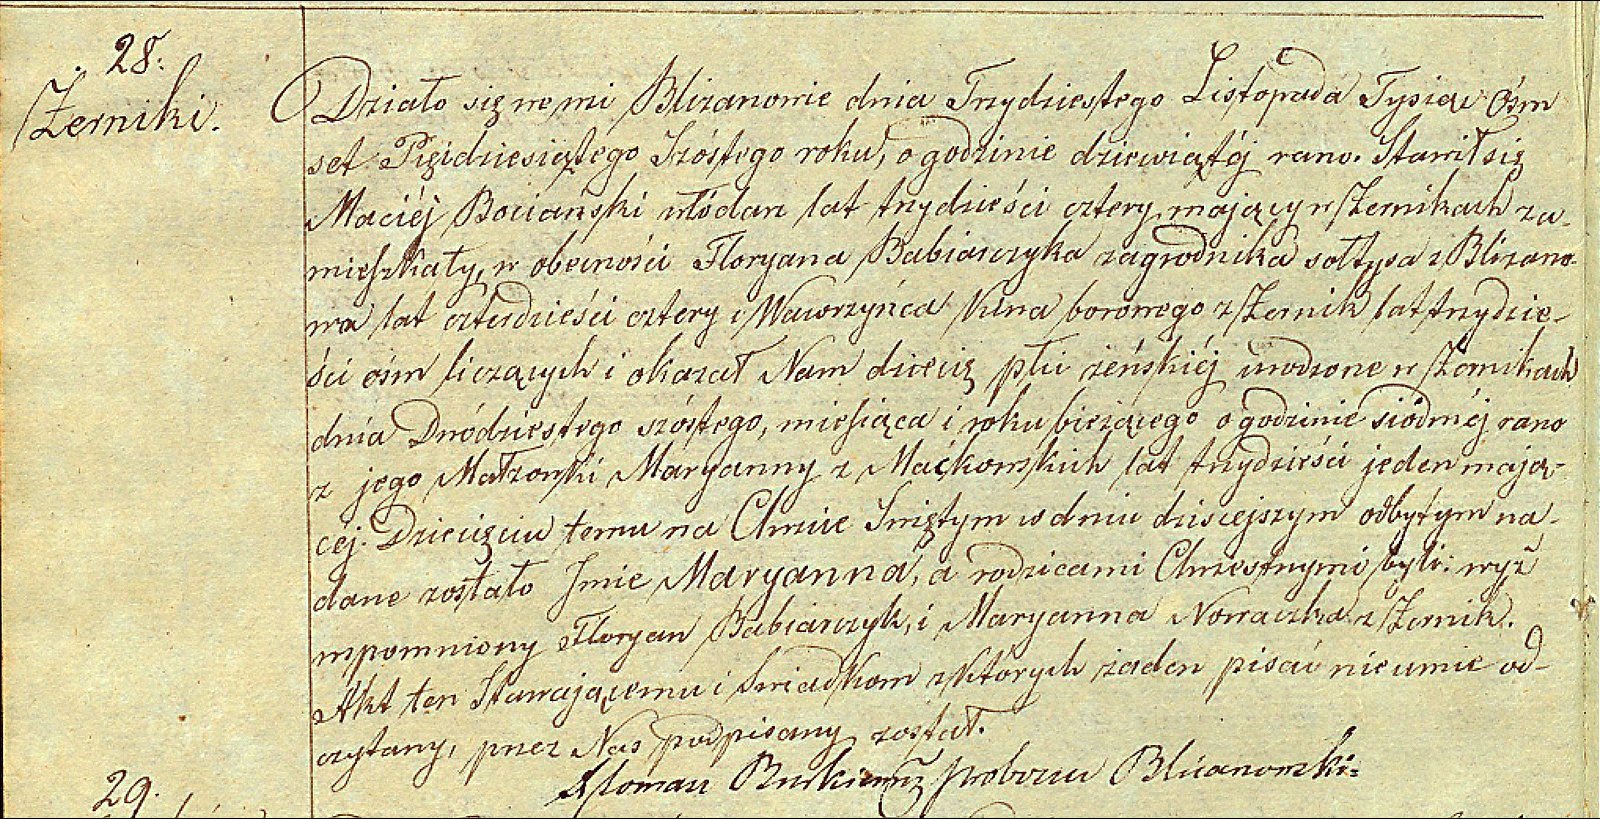 28.
Żerniki.
Działo się we wsi Blizanowie dnia Trzydziestego Listopada Tysiąc Ośm
set Pięidziesiątego Szóstego roku, o godzinie dziewiątéj rano. Stawił się
Maciéj Bocianski włódarz lat trzydzieści cztery mający w Żernikach za-
mieszkały, w obecności Floryana Babiarczyka zagrodnika sołtysa z Blizano-
wa lat czterdzieści cztery i Wawrzyńca Kuna borowego z Żernik lat trzydzie-
ści ośm liczących i okazał Nam dziecię płci żeńskiéj urodzone w Żernikach
dnia Dwódziestego szóstego, miesiąca i roku bieżącego o godzinie siódméj rano
z jego Małzonki Maryanny z Maćkowskich lat trzydzieści jeden mają-
céj. Dziecięciu temu na Chrzcie Swiętym w dniu dzisiejszym odbytym na-
dane zostało Jmie Maryanna, a rodzicami Chrzestnymi byli: wyż
wpomniony Floryan Babiarczyk, i Maryanna Nowaczka z Żernik.
Akt ten Stawającemu i Swiadkom z których żaden pisać nieumie od-
czytany, przez Nas podpisany został.
proboszcz Blizanowski
29.